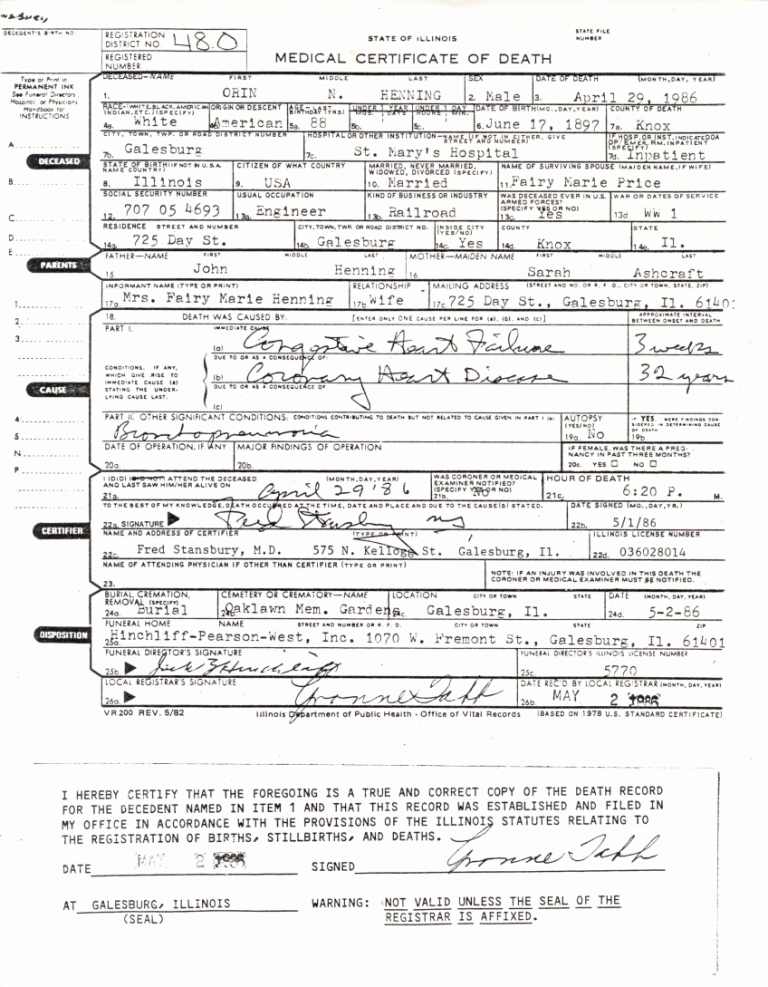 DECEDENT'S BIRTH NO.
REGISTRATION DISTRICT NO. 48.0
REGISTERED NUMBER
STATE OF ILLINOIS
STATE FILE NUMBER
MEDICAL CERTIFICATE OF DEATH
Type or Print in PERMANENT INK
See Funeral Directors, Hospital, or Physicians Handbook for INSTRUCTIONS
DECEASED—NAME FIRST MIDDLE LAST SEX DATE OF DEATH (MONTH, DAY, YEAR)
1. ORIN N. HENNING 2. Male 3. April 29, 1986
RACE—WHITE, BLACK, AMERICAN INDIAN, ETC. (SPECIFY) ORIGIN OR DESCENT AGE—LAST BIRTHDAY (YRS) UNDER 1 YEAR UNDER 1 DAY DATE OF BIRTH (MO., DAY, YR) COUNTY OF DEATH
4a. White 4b. American 5a. 88 5b. 5c. 6. June 17, 1897 7a. Knox
CITY, TOWN, TWP. OR ROAD DISTRICT NUMBER HOSPITAL OR OTHER INSTITUTION—NAME (IF NOT IN EITHER, GIVE STREET AND NUMBER) IF HOSP. OR INST. INDICATE DOA OP/EMER. RM. INPATIENT (SPECIFY)
7b. Galesburg 7c. St. Mary's Hospital 7d. Inpatient
STATE OF BIRTH (IF NOT IN U.S.A. NAME COUNTRY) CITIZEN OF WHAT COUNTRY MARRIED, NEVER MARRIED, WIDOWED, DIVORCED (SPECIFY) NAME OF SURVIVING SPOUSE (MAIDEN NAME, IF WIFE)
8. Illinois 9. USA 10. Married 11. Fairy Marie Price
SOCIAL SECURITY NUMBER USUAL OCCUPATION KIND OF BUSINESS OR INDUSTRY WAS DECEASED EVER IN U.S. ARMED FORCES? (SPECIFY YES OR NO) WAR OR DATES OF SERVICE
12. 707 05 4693 13a. Engineer 13b. Railroad 13c. Yes 13d. WW 1
RESIDENCE STREET AND NUMBER CITY, TOWN, TWP. OR ROAD DISTRICT NO. INSIDE CITY (YES/NO) COUNTY STATE
14a. 725 Day St. 14b. Galesburg 14c. Yes 14d. Knox 14e. Il.
FATHER—NAME FIRST MIDDLE LAST MOTHER—MAIDEN NAME FIRST MIDDLE LAST
15. John Henning 16. Sarah Ashcraft
INFORMANT NAME (TYPE OR PRINT) RELATIONSHIP MAILING ADDRESS (STREET AND NO. OR R. F. D., CITY OR TOWN, STATE, ZIP)
17a. Mrs. Fairy Marie Henning 17b. Wife 17c. 725 Day St., Galesburg, Il. 61401
18. DEATH WAS CAUSED BY: [ENTER ONLY ONE CAUSE PER LINE FOR (a), (b), AND (c)] APPROXIMATE INTERVAL BETWEEN ONSET AND DEATH
PART I. IMMEDIATE CAUSE
(a) Congestive Heart Failure 3 weeks
DUE TO OR AS A CONSEQUENCE OF:
CONDITIONS, IF ANY, WHICH GIVE RISE TO IMMEDIATE CAUSE (a) STATING THE UNDERLYING CAUSE LAST.
(b) Coronary Heart Disease 32 years
DUE TO OR AS A CONSEQUENCE OF
(c)
PART II. OTHER SIGNIFICANT CONDITIONS: CONDITIONS CONTRIBUTING TO DEATH BUT NOT RELATED TO CAUSE GIVEN IN PART I (a) AUTOPSY (YES/NO) IF YES, WERE FINDINGS CONSIDERED IN DETERMINING CAUSE OF DEATH
Bronchopneumonia 19a. NO 19b.
DATE OF OPERATION, IF ANY MAJOR FINDINGS OF OPERATION IF FEMALE, WAS THERE A PREGNANCY IN PAST THREE MONTHS?
20a. 20b. 20c. YES NO
I (DID) (DID NOT) ATTEND THE DECEASED AND LAST SAW HIM/HER ALIVE ON (MONTH, DAY, YEAR) WAS CORONER OR MEDICAL EXAMINER NOTIFIED? (SPECIFY YES OR NO) HOUR OF DEATH
21a. April 29 '86 21b. No 21c. 6:20 P. M.
TO THE BEST OF MY KNOWLEDGE, DEATH OCCURRED AT THE TIME, DATE AND PLACE AND DUE TO THE CAUSE(S) STATED. DATE SIGNED (MO., DAY, YR.)
22a. SIGNATURE Fred Stansbury MD 22b. 5/1/86
NAME AND ADDRESS OF CERTIFIER (TYPE OR PRINT) ILLINOIS LICENSE NUMBER
22c. Fred Stansbury, M.D. 575 N. Kellogg St. Galesburg, Il. 22d. 036028014
NAME OF ATTENDING PHYSICIAN IF OTHER THAN CERTIFIER (TYPE OR PRINT) NOTE: IF AN INJURY WAS INVOLVED IN THIS DEATH THE CORONER OR MEDICAL EXAMINER MUST BE NOTIFIED.
23.
BURIAL, CREMATION, REMOVAL (SPECIFY) CEMETERY OR CREMATORY—NAME LOCATION CITY OR TOWN STATE DATE (MONTH, DAY, YEAR)
24a. Burial 24b. Oaklawn Mem. Gardens 24c. Galesburg, Il. 24d. 5-2-86
FUNERAL HOME NAME STREET AND NUMBER OR R. F. D. CITY OR TOWN STATE ZIP
25a. Hinchliff-Pearson-West, Inc. 1070 W. Fremont St., Galesburg, Il. 61401
FUNERAL DIRECTOR'S SIGNATURE FUNERAL DIRECTOR'S ILLINOIS LICENSE NUMBER
25b. 25c. 5770
LOCAL REGISTRAR'S SIGNATURE DATE REC'D BY LOCAL REGISTRAR (MONTH, DAY, YEAR)
26a. Yvonne Tabb 26b. MAY 2 1986
VR 200 REV. 5/82 Illinois Department of Public Health - Office of Vital Records (BASED ON 1978 U.S. STANDARD CERTIFICATE)
A.
DECEASED
B.
C.
D.
E.
PARENTS
1.
2.
3.
CAUSE
4.
5.
N.
P.
CERTIFIER
DISPOSITION
I HEREBY CERTIFY THAT THE FOREGOING IS A TRUE AND CORRECT COPY OF THE DEATH RECORD
FOR THE DECEDENT NAMED IN ITEM 1 AND THAT THIS RECORD WAS ESTABLISHED AND FILED IN
MY OFFICE IN ACCORDANCE WITH THE PROVISIONS OF THE ILLINOIS STATUTES RELATING TO
THE REGISTRATION OF BIRTHS, STILLBIRTHS, AND DEATHS.
DATE MAY 2 1986 SIGNED Yvonne Tabb
AT GALESBURG, ILLINOIS WARNING: NOT VALID UNLESS THE SEAL OF THE
(SEAL) REGISTRAR IS AFFIXED.